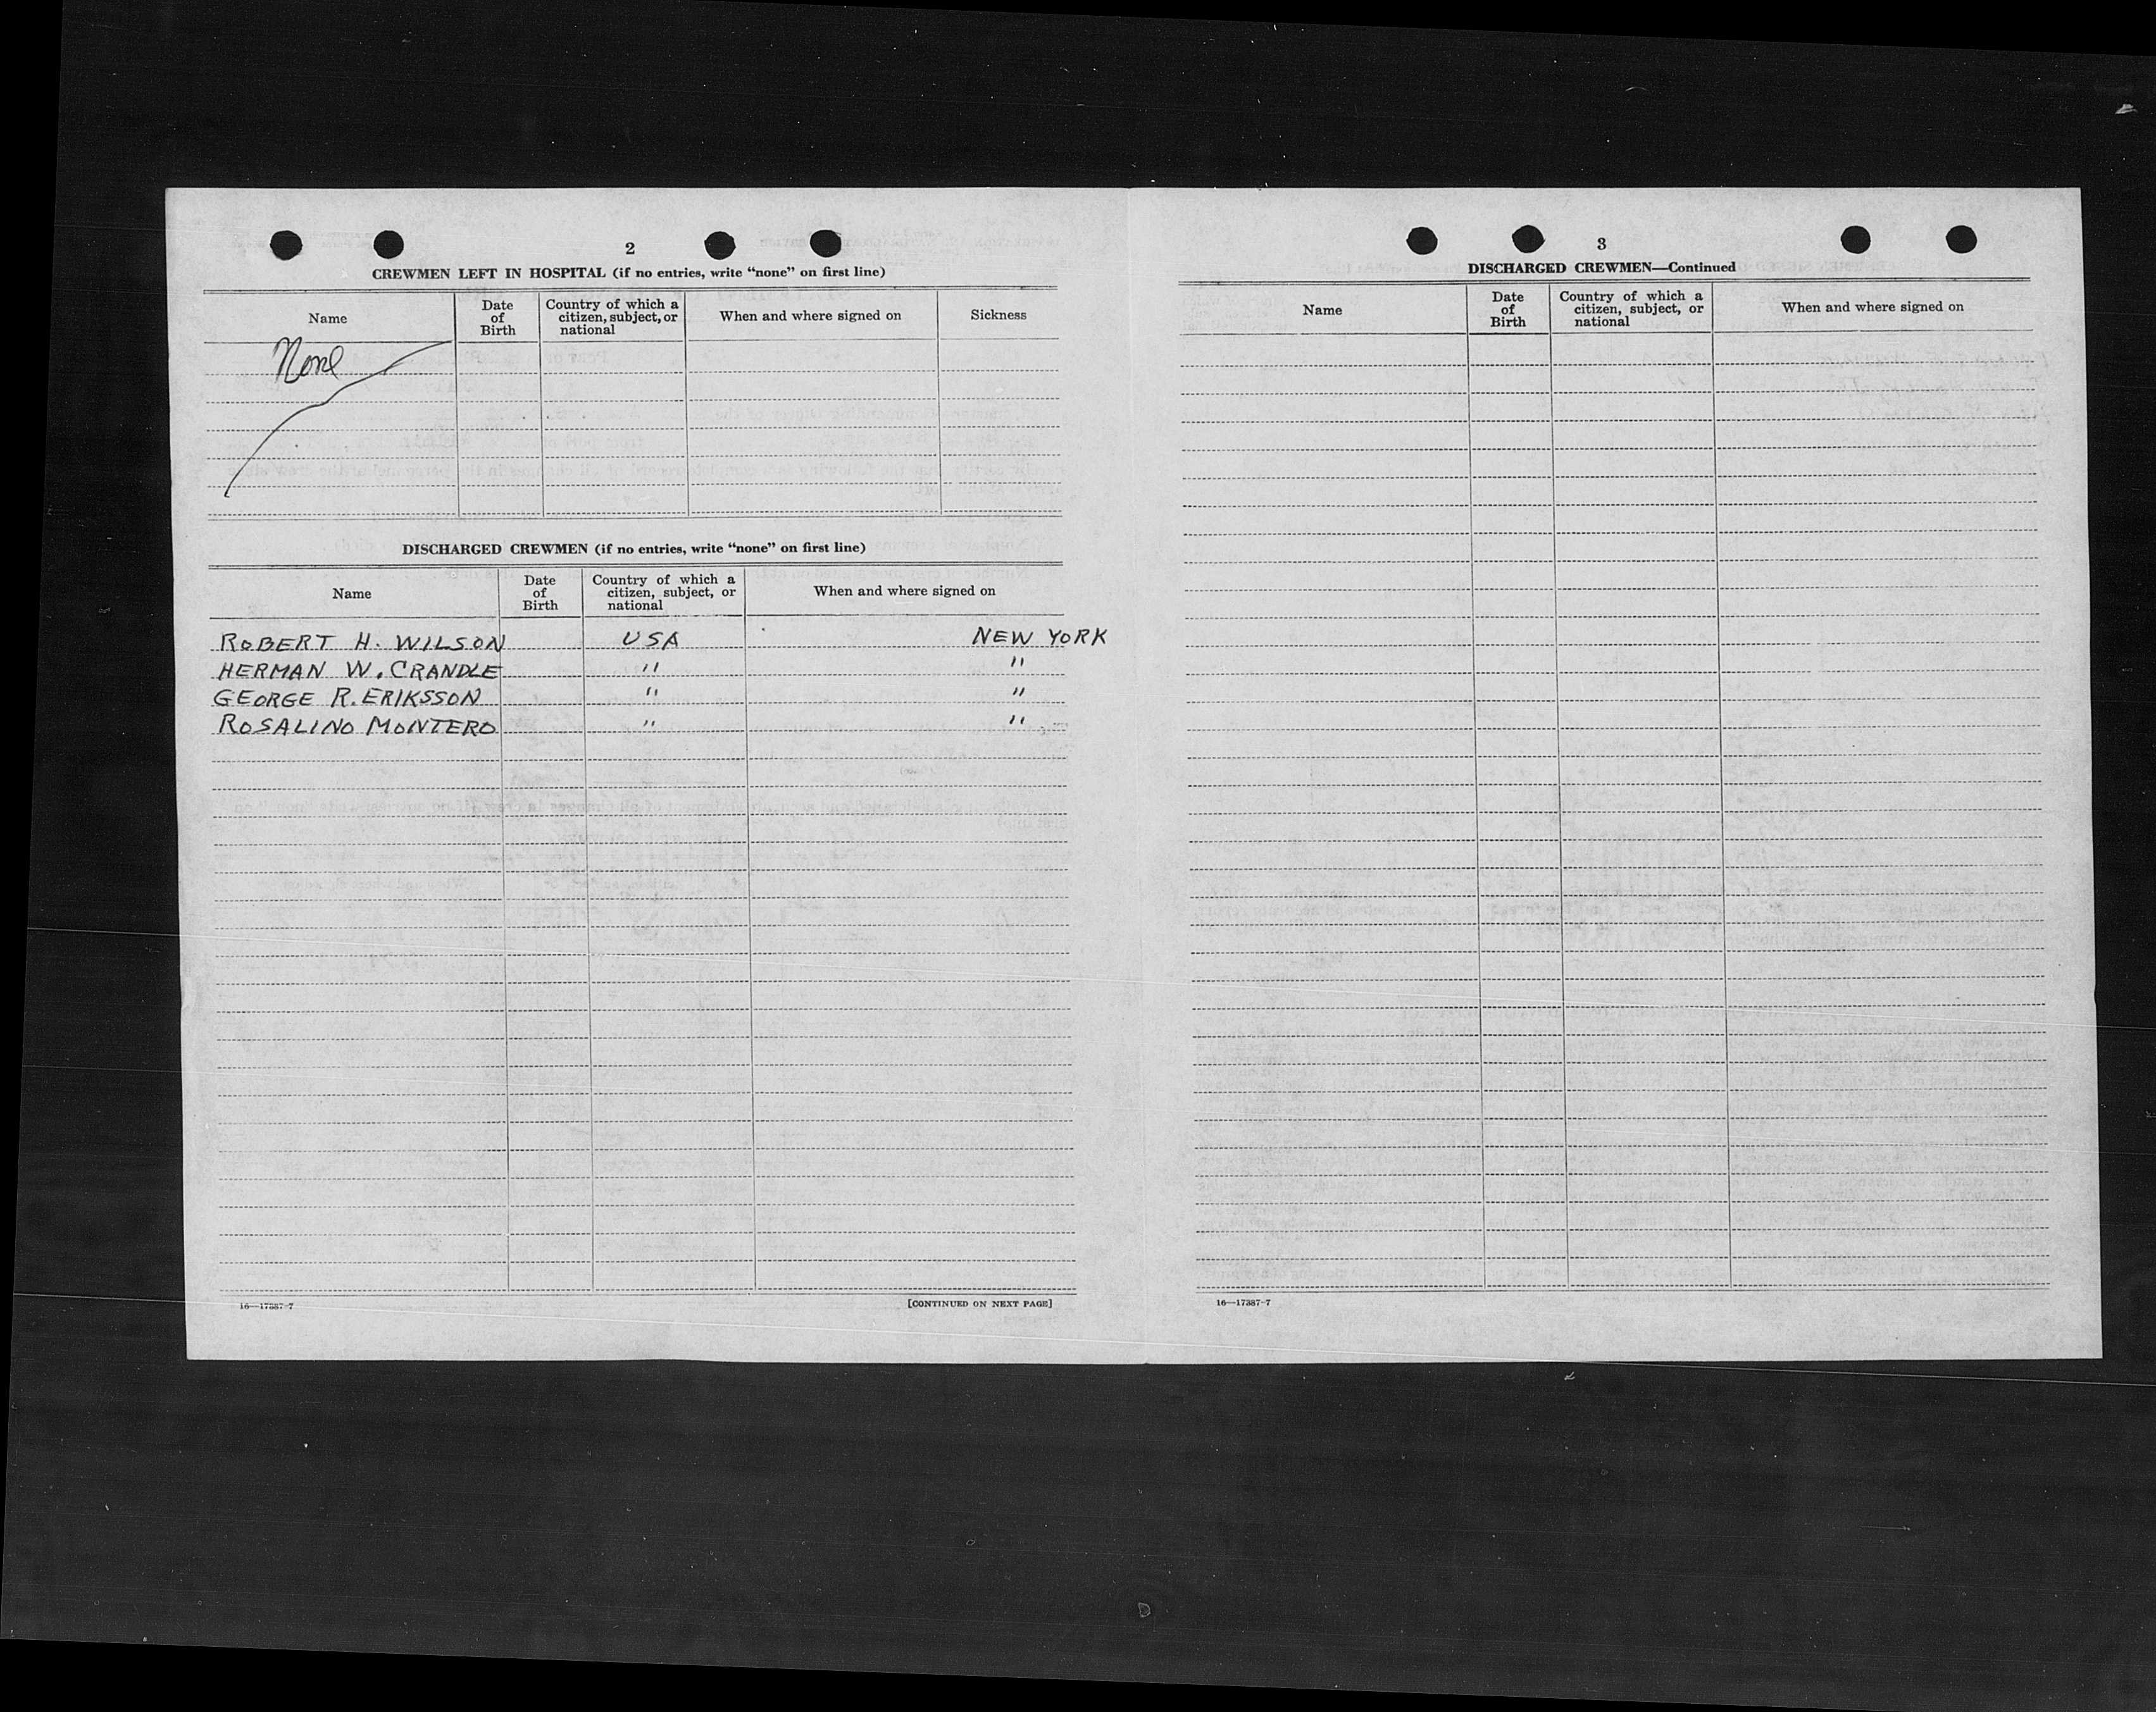 2
CREWMEN LEFT IN HOSPITAL (if no entries, write “none” on first line)
Name
Date of Birth
Country of which a citizen, subject, or national
When and where signed on
Sickness
None
DISCHARGED CREWMEN (if no entries, write “none” on first line)
Name
Date of Birth
Country of which a citizen, subject, or national
When and where signed on
ROBERT H. WILSON USA NEW YORK
HERMAN W. CRANDLE " "
GEORGE R. ERIKSSON " "
ROSALINO MONTERO " "
16—17387-7
[CONTINUED ON NEXT PAGE]
3
DISCHARGED CREWMEN—Continued
Name
Date of Birth
Country of which a citizen, subject, or national
When and where signed on
16—17387-7